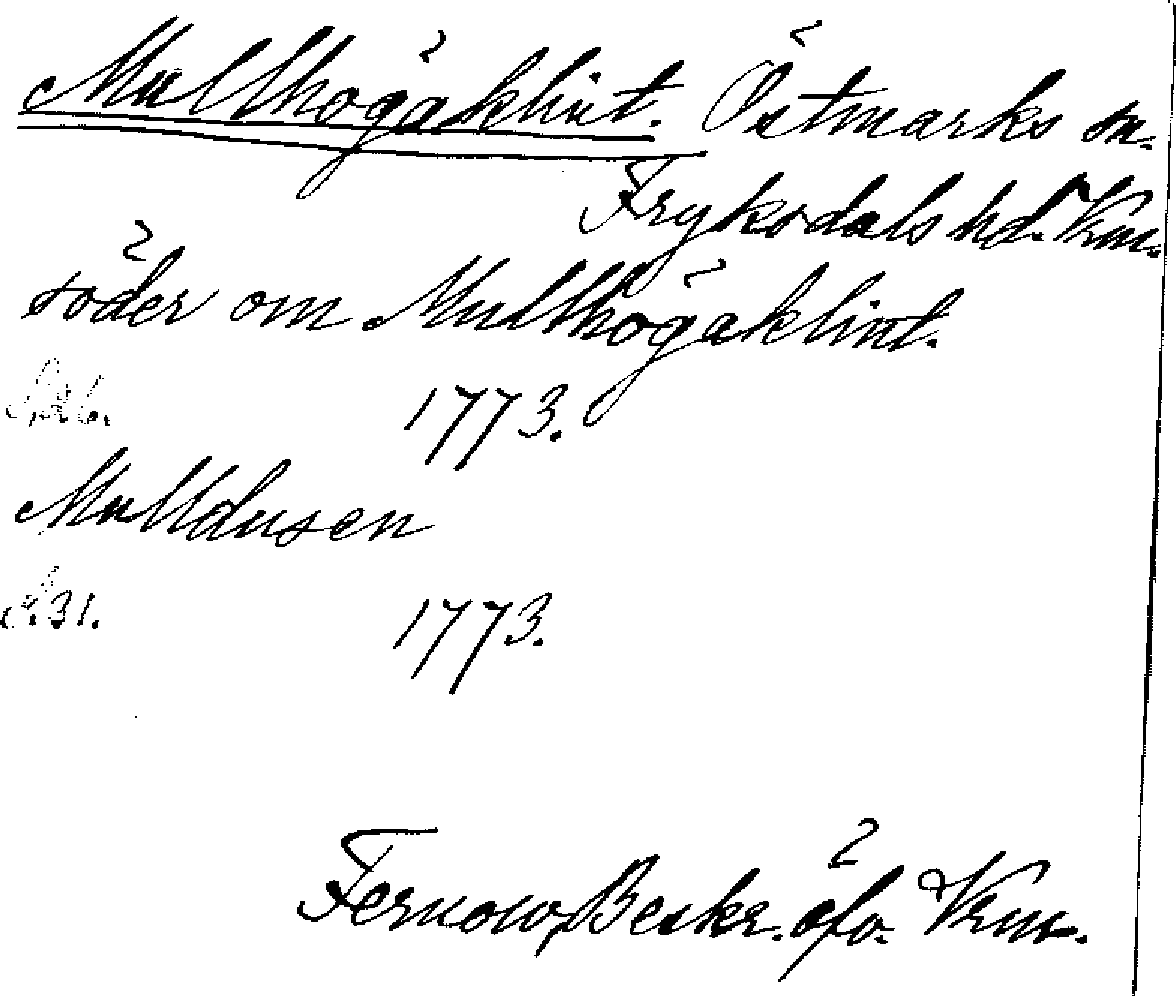 Mullhögåklint. Östmarks sn.
Fryksdals hd. Vrm.
söder om Mullhögåklint.
1773.
Mulldusen
S. 31. 1773.
Fernow, Beskr. öfv. Vrm.